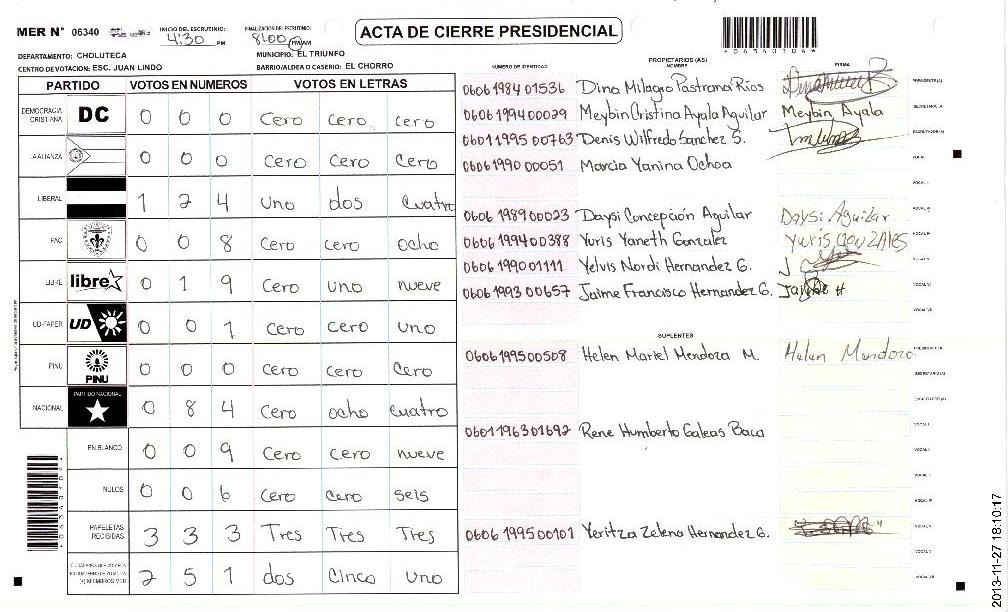 MER N° 06340 INICIO DEL ESCRUTINIO: 4:30 PM FINALIZACIÓN DEL ESCRUTINIO: 8:00 PM/AM ACTA DE CIERRE PRESIDENCIAL *06340104*
DEPARTAMENTO: CHOLUTECA MUNICIPIO: EL TRIUNFO
CENTRO DE VOTACION: ESC. JUAN LINDO BARRIO/ALDEA O CASERIO: EL CHORRO
PARTIDO VOTOS EN NUMEROS VOTOS EN LETRAS
DEMOCRACIA CRISTIANA DC 0 0 0 Cero Cero Cero
LA ALIANZA 0 0 0 Cero Cero Cero
LIBERAL 1 2 4 Uno dos Cuatro
PAC 0 0 8 Cero cero ocho
LIBRE libre 0 1 9 Cero uno nueve
UD-FAPER UD 0 0 1 Cero Cero Uno
PINU PINU 0 0 0 Cero Cero Cero
NACIONAL PARTIDO NACIONAL 0 8 4 Cero ocho Cuatro
EN BLANCO 0 0 9 Cero Cero nueve
NULOS 0 0 6 Cero Cero seis
PAPELETAS RECIBIDAS 3 3 3 Tres Tres Tres
(+) MIEMBROS MER 2 5 1 dos Cinco Uno
PROPIETARIOS (AS)
NUMERO DE IDENTIDAD NOMBRE FIRMA
0606 1984 01536 Dina Milagro Pastrana Ríos PRESIDENTE (A)
0606 1994 00029 Meybin Cristina Ayala Aguilar Meybin Ayala SECRETARIO (A)
0601 1995 00763 Denis Wilfredo Sanchez S. ESCRUTADOR (A)
0606 1990 00051 Marcia Yanina Ochoa VOCAL I
VOCAL II
0606 1989 00023 Daysi Concepción Aguilar Daysi Aguilar VOCAL III
0606 1994 00388 Yuris Yaneth Gonzalez Yuris GONZALES VOCAL IV
0606 1990 01111 Yelvis Nordi Hernandez G. VOCAL V
0606 1993 00657 Jaime Francisco Hernandez G. Jaime H VOCAL VI
VOCAL VII
SUPLENTES
0606 1995 00508 Helen Mariel Mendoza M. Helen Mendoza PRESIDENTE (A)
SECRETARIO (A)
ESCRUTADOR (A)
0601 1963 01692 Rene Humberto Galeas Baca VOCAL I
VOCAL II
VOCAL III
VOCAL IV
0606 1995 00101 Yeritza Zelena Hernandez G. VOCAL V
VOCAL VI
VOCAL VII
*06340104*
2013-11-27 18:10:17